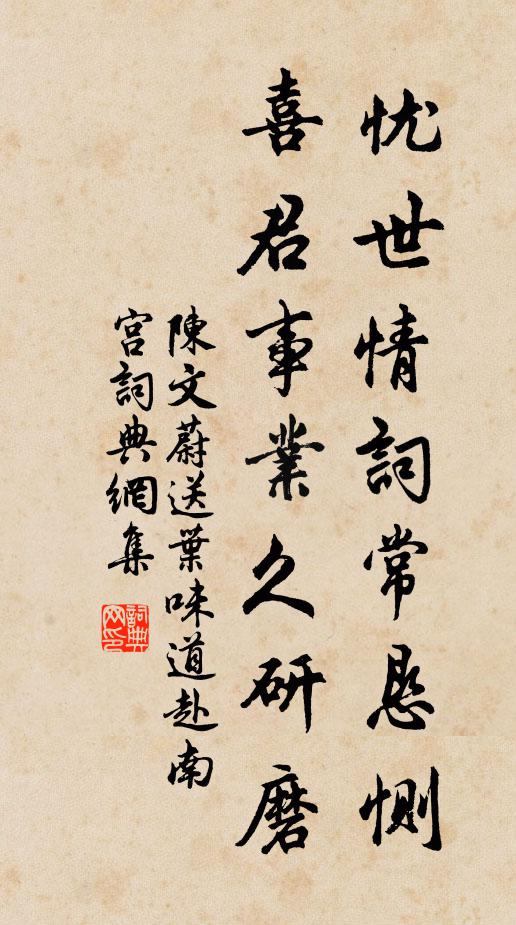 忧世情詞常恳惻
喜君事業久研磨
陳文蔚送葉味道赴南
宮詞典網集
詞典网印